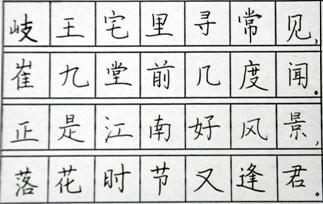 岐王宅里寻常见,
崔九堂前几度闻。
正是江南好风景,
落花时节又逢君。